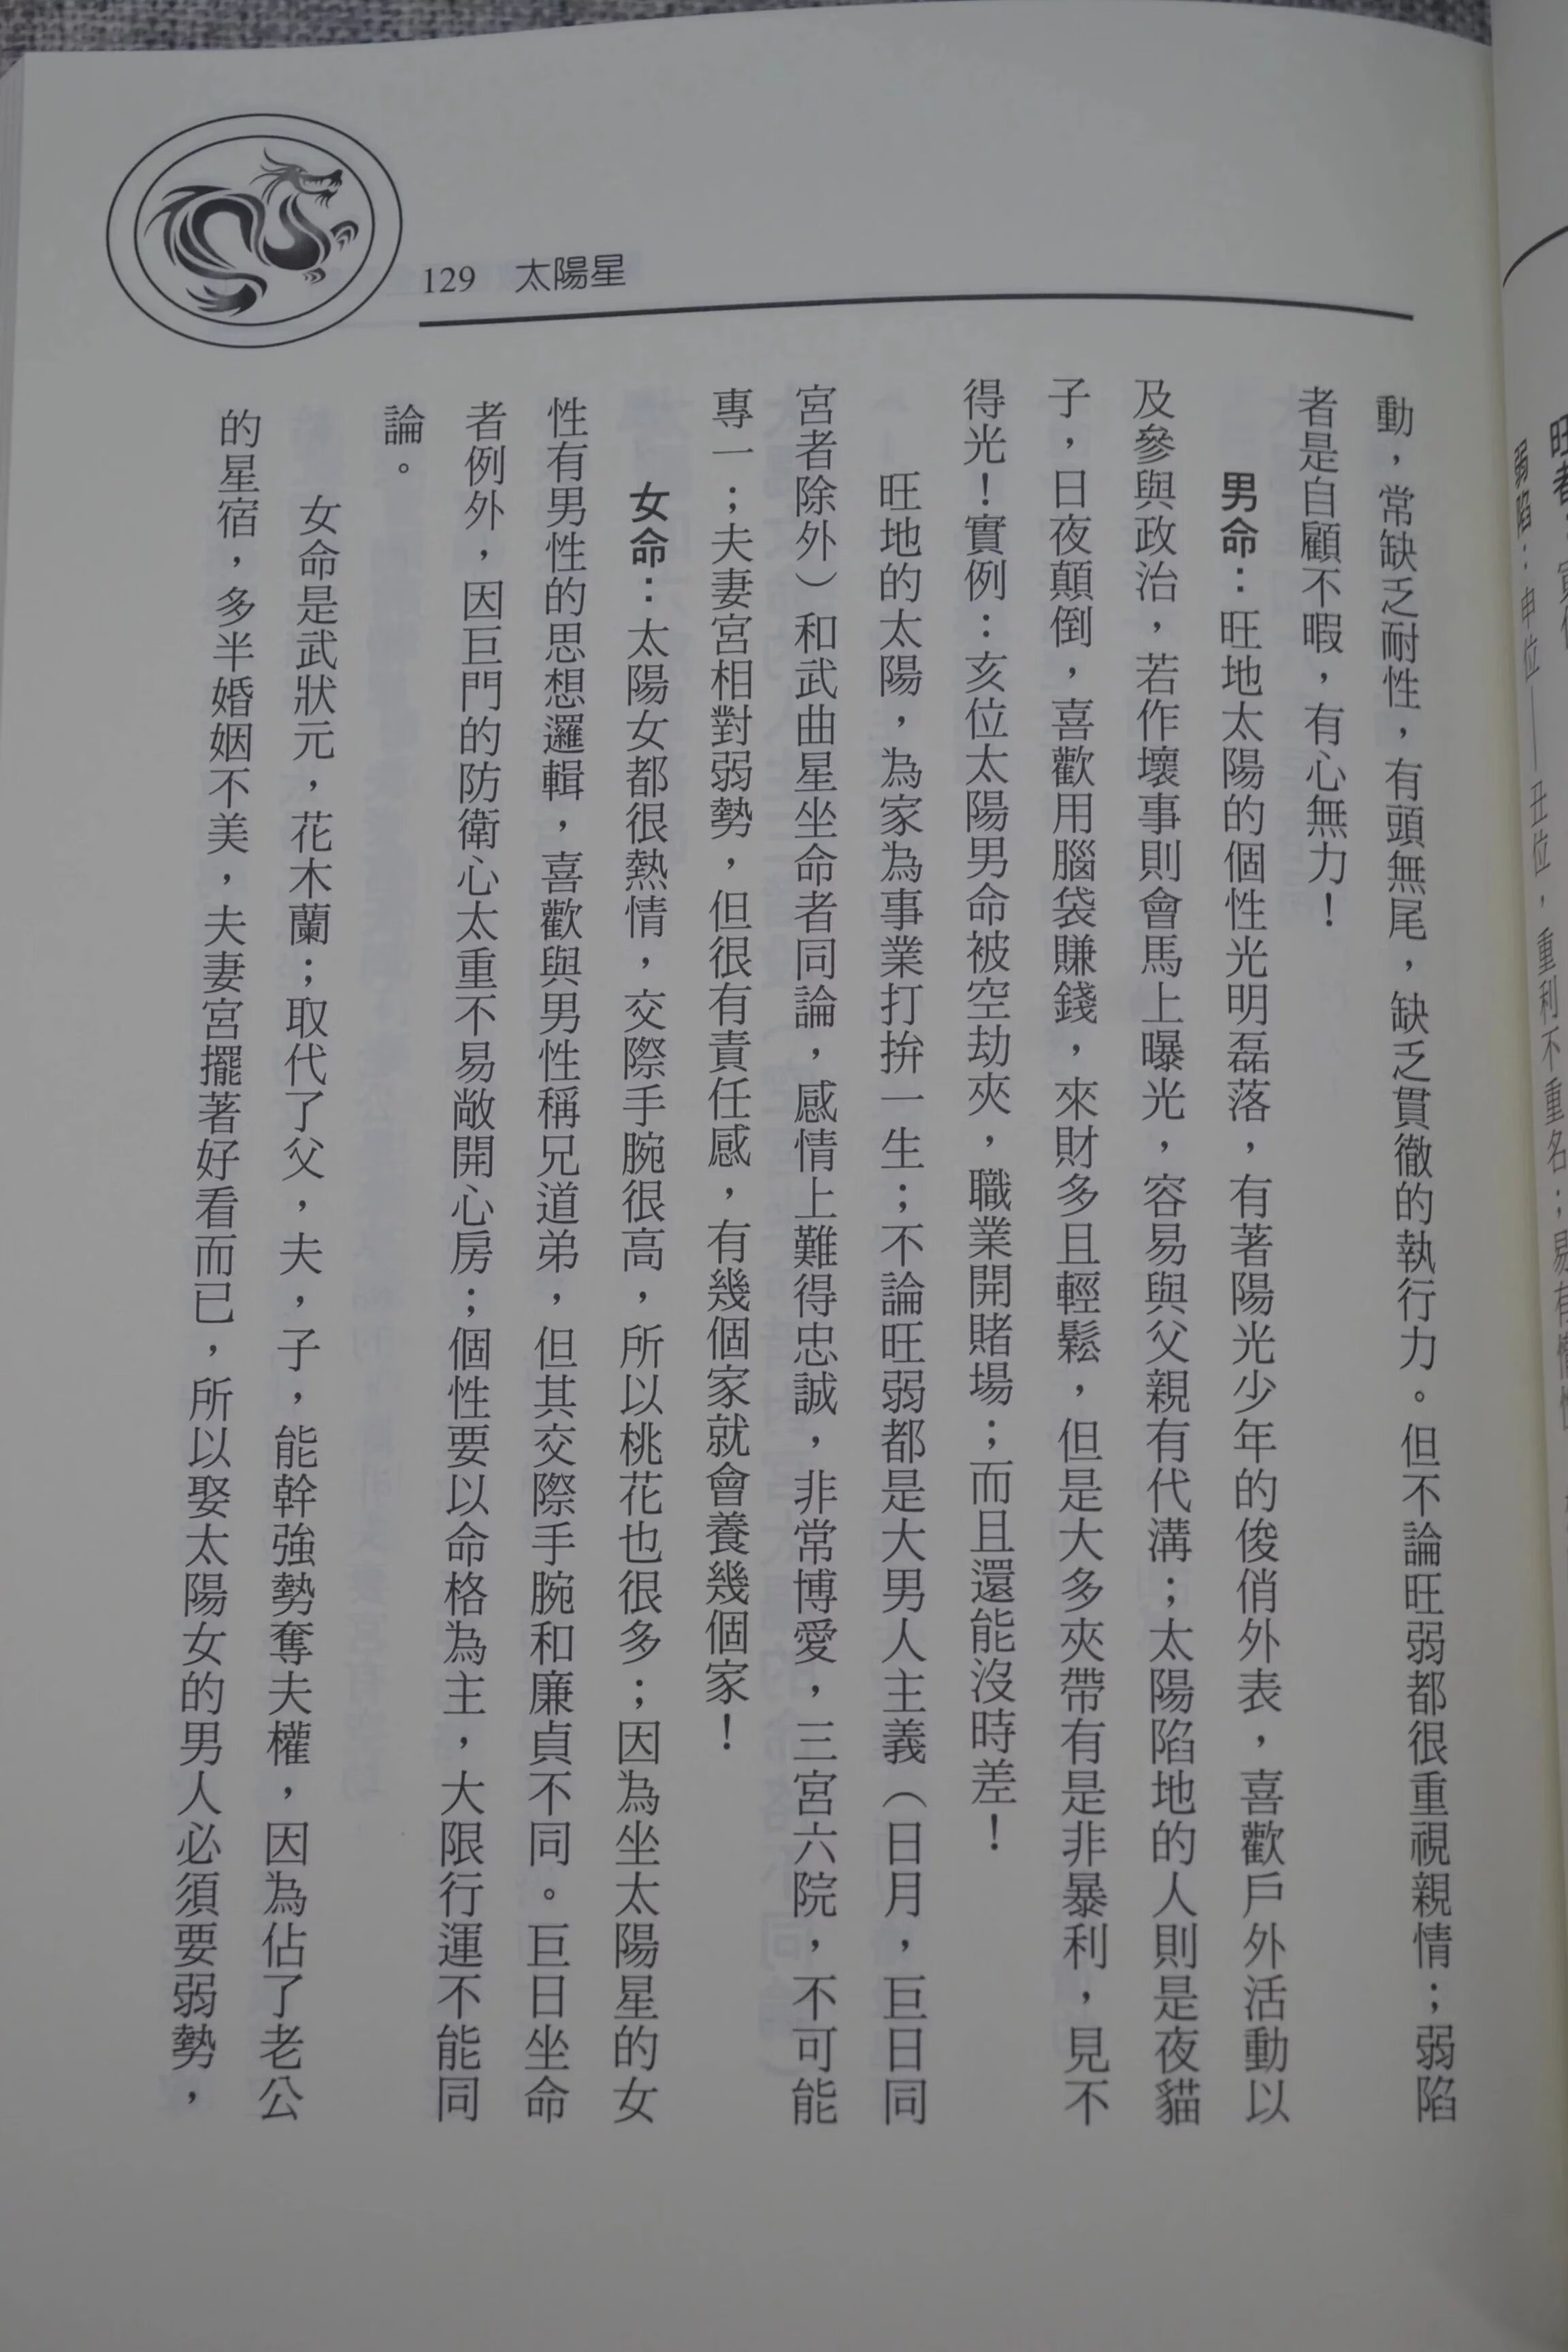 129 太陽星
動，常缺乏耐性，有頭無尾，缺乏貫徹的執行力。但不論旺弱都很重視親情；弱陷
者是自顧不暇，有心無力！
男命：旺地太陽的個性光明磊落，有著陽光少年的俊俏外表，喜歡戶外活動以
及參與政治，若作壞事則會馬上曝光，容易與父親有代溝；太陽陷地的人則是夜貓
子，日夜顛倒，喜歡用腦袋賺錢，來財多且輕鬆，但是大多夾帶有是非暴利，見不
得光！實例：亥位太陽男命被空劫夾，職業開賭場；而且還能沒時差！
旺地的太陽，為家為事業打拚一生；不論旺弱都是大男人主義（日月，巨日同
宮者除外）和武曲星坐命者同論，感情上難得忠誠，非常博愛，三宮六院，不可能
專一；夫妻宮相對弱勢，但很有責任感，有幾個家就會養幾個家！
女命：太陽女都很熱情，交際手腕很高，所以桃花也很多；因為坐太陽星的女
性有男性的思想邏輯，喜歡與男性稱兄道弟，但其交際手腕和廉貞不同。巨日坐命
者例外，因巨門的防衛心太重不易敞開心房；個性要以命格為主，大限行運不能同
論。
女命是武狀元，花木蘭；取代了父，夫，子，能幹強勢奪夫權，因為佔了老公
的星宿，多半婚姻不美，夫妻宮擺著好看而已，所以娶太陽女的男人必須要弱勢，
弱陷：申位──丑位，重利不重名；易有